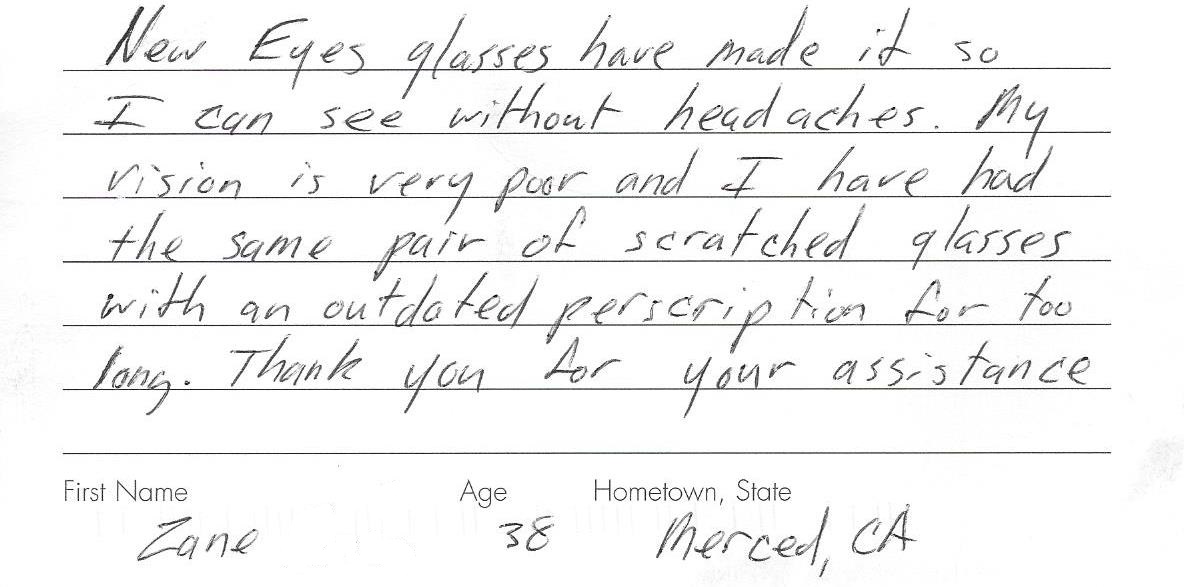 New Eyes glasses have made it so
I can see without headaches. My
vision is very poor and I have had
the same pair of scratched glasses
with an outdated perscription for too
long. Thank you for your assistance
First Name Age Hometown, State
Zane 38 Merced, CA